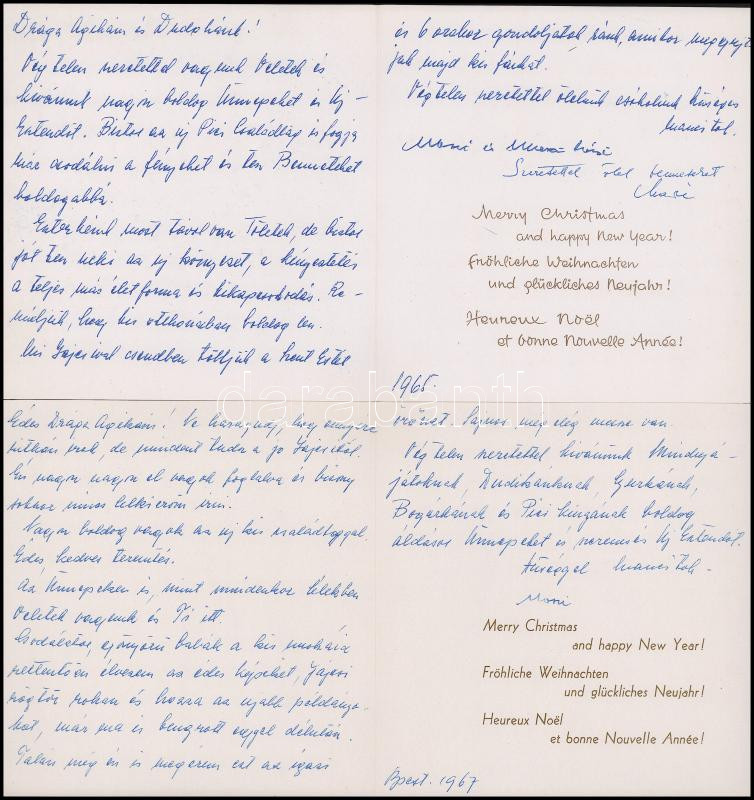 Drága Ágikám és Dudokánk!
Végtelen szeretettel vagyunk Veletek és
kívánunk nagyon boldog Ünnepeket és Új-
Esztendőt. Biztos az új Pici Családtag is fogja
már csodálni a fényeket és tesz Benneteket
boldogabbá.
most távol van Tőletek, de biztos
jót tesz neki az új környezet, a
a teljes más életforma és kikapcsolódás. Re-
méljük, hogy kis otthonában boldog lesz.
Mi Gajcsival csendben töltjük a Szent Estét
és 6 órakor gondoljatok ránk, amikor meggyújt
juk majd kis fánkat.
Végtelen szeretettel ölelünk csókolunk hűséges
Mancitok.
Szeretettel ölel benneteket
Merry Christmas
and happy New Year!
Fröhliche Weihnachten
und glückliches Neujahr!
Heureux Noël
et bonne Nouvelle Année!
1965.
darabanth
Édes Drága Ágikám! Ne haragudj, hogy annyira
ritkán írok, de mindent tudsz a jó Gajcsitól.
Én nagyon nagyon el vagyok foglalva és bizony
sokszor nincs lelkierőm írni.
Nagyon boldog vagyok az új kis családtaggal.
Édes, kedves teremtés.
Az Ünnepeken is, mint mindenkor lélekben
Veletek vagyunk és Ti itt.
Csodálatos, gyönyörű babák a kis unokáid
rettentően élvezem az édes képeket, Gajcsi
rögtön rohan és hozza az újabb példányo-
kat, már ma is beugrott eggyel délután.
Talán még én is megérem ezt az igazi
örömet. Sajnos még elég messze van.
Végtelen szeretettel kívánunk Mindnyá-
jatoknak, Dudikánknak, Gyurkának,
Bogárkának és Pici húzának boldog
áldásos Ünnepeket és szerencsés Új Esztendőt.
Hűséggel Mancitok.
Merry Christmas
and happy New Year!
Fröhliche Weihnachten
und glückliches Neujahr!
Heureux Noël
et bonne Nouvelle Année!
Bpest. 1967